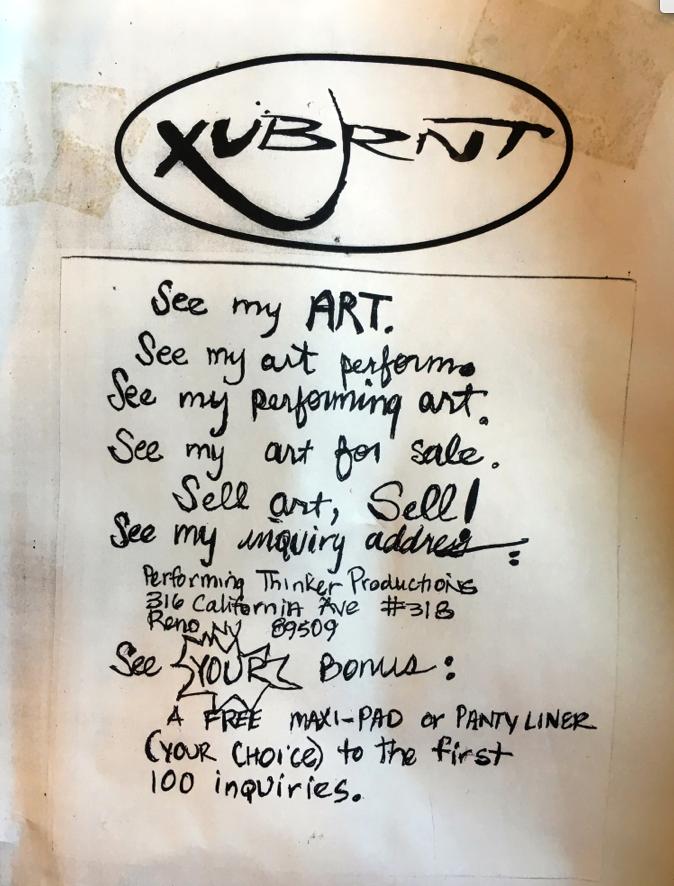 XUBRNT
See my ART.
See my art perform.
See my performing art.
See my art for sale.
Sell art, Sell!
See my inquiry address:
Performing Thinker Productions
316 California Ave #318
Reno, NV 89509
See YOUR Bonus:
A FREE MAXI-PAD or PANTY LINER
(YOUR CHOICE) to the first
100 inquiries.